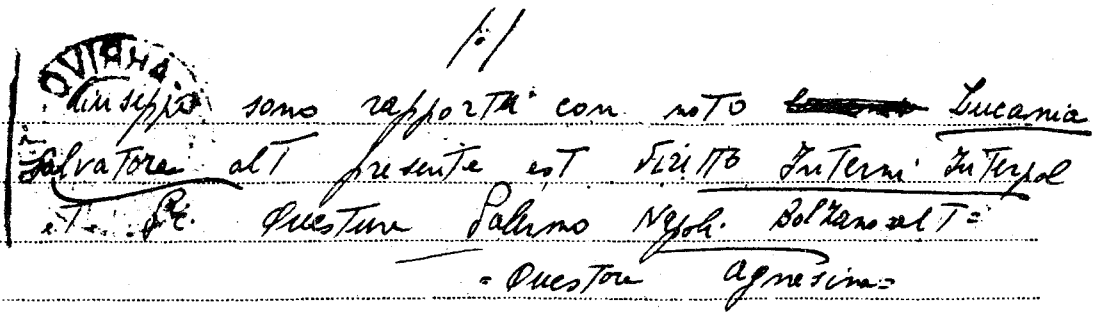 /•/
OVINHA
Giuseppe sono rapporti con noto Lucania
Salvatore alt presente est diretto Interni Interpol
et Questure Palermo Napoli Bolzano alt =
= Questore Agnesina =